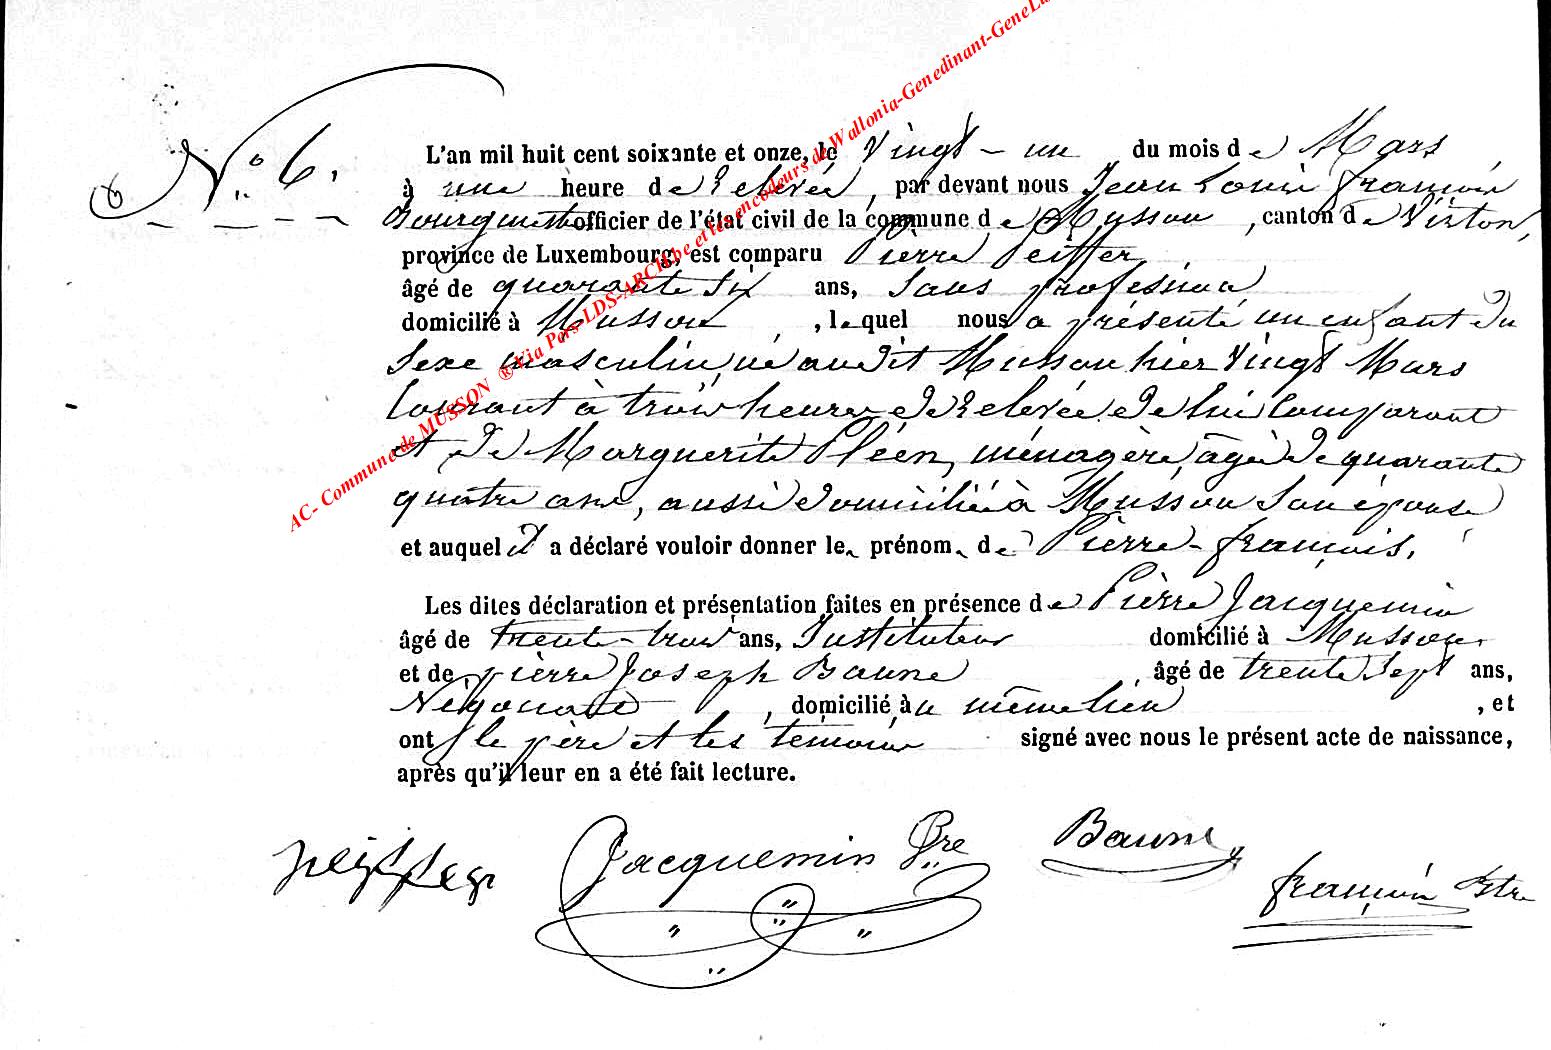 N° 6.
L'an mil huit cent soixante et onze, le Vingt - un du mois de Mars
à une heure de Relevée, par devant nous Jean Louis François
officier de l'état civil de la commune de Musson, canton de Virton,
province de Luxembourg, est comparu Pierre Peiffer
âgé de quarante Six ans, Sans profession
domicilié à Musson, lequel nous a présenté un enfant du
Sexe masculin, né audit Musson hier Vingt Mars
Courant à trois heures de Relevée de lui Comparant
et de Marguerite Pléen, ménagère, âgée de quarante
quatre ans, aussi domiciliée à Musson Son épouse
et auquel il a déclaré vouloir donner les prénoms de Pierre-François.
Les dites déclaration et présentation faites en présence de Pierre Jacquemin
âgé de trente-trois ans, Instituteur domicilié à Musson
et de pierre Joseph Baune âgé de trente Sept ans,
Négociant, domicilié au même lieu, et
ont le père et les témoins signé avec nous le présent acte de naissance,
après qu'il leur en a été fait lecture.
peiffer Jacquemin Pre Baune
françois Btre
AC- Commune de MUSSON ® Via Pers-LDS-ARCH.be et les encodeurs de Wallonia-Genedinant-GeneLu